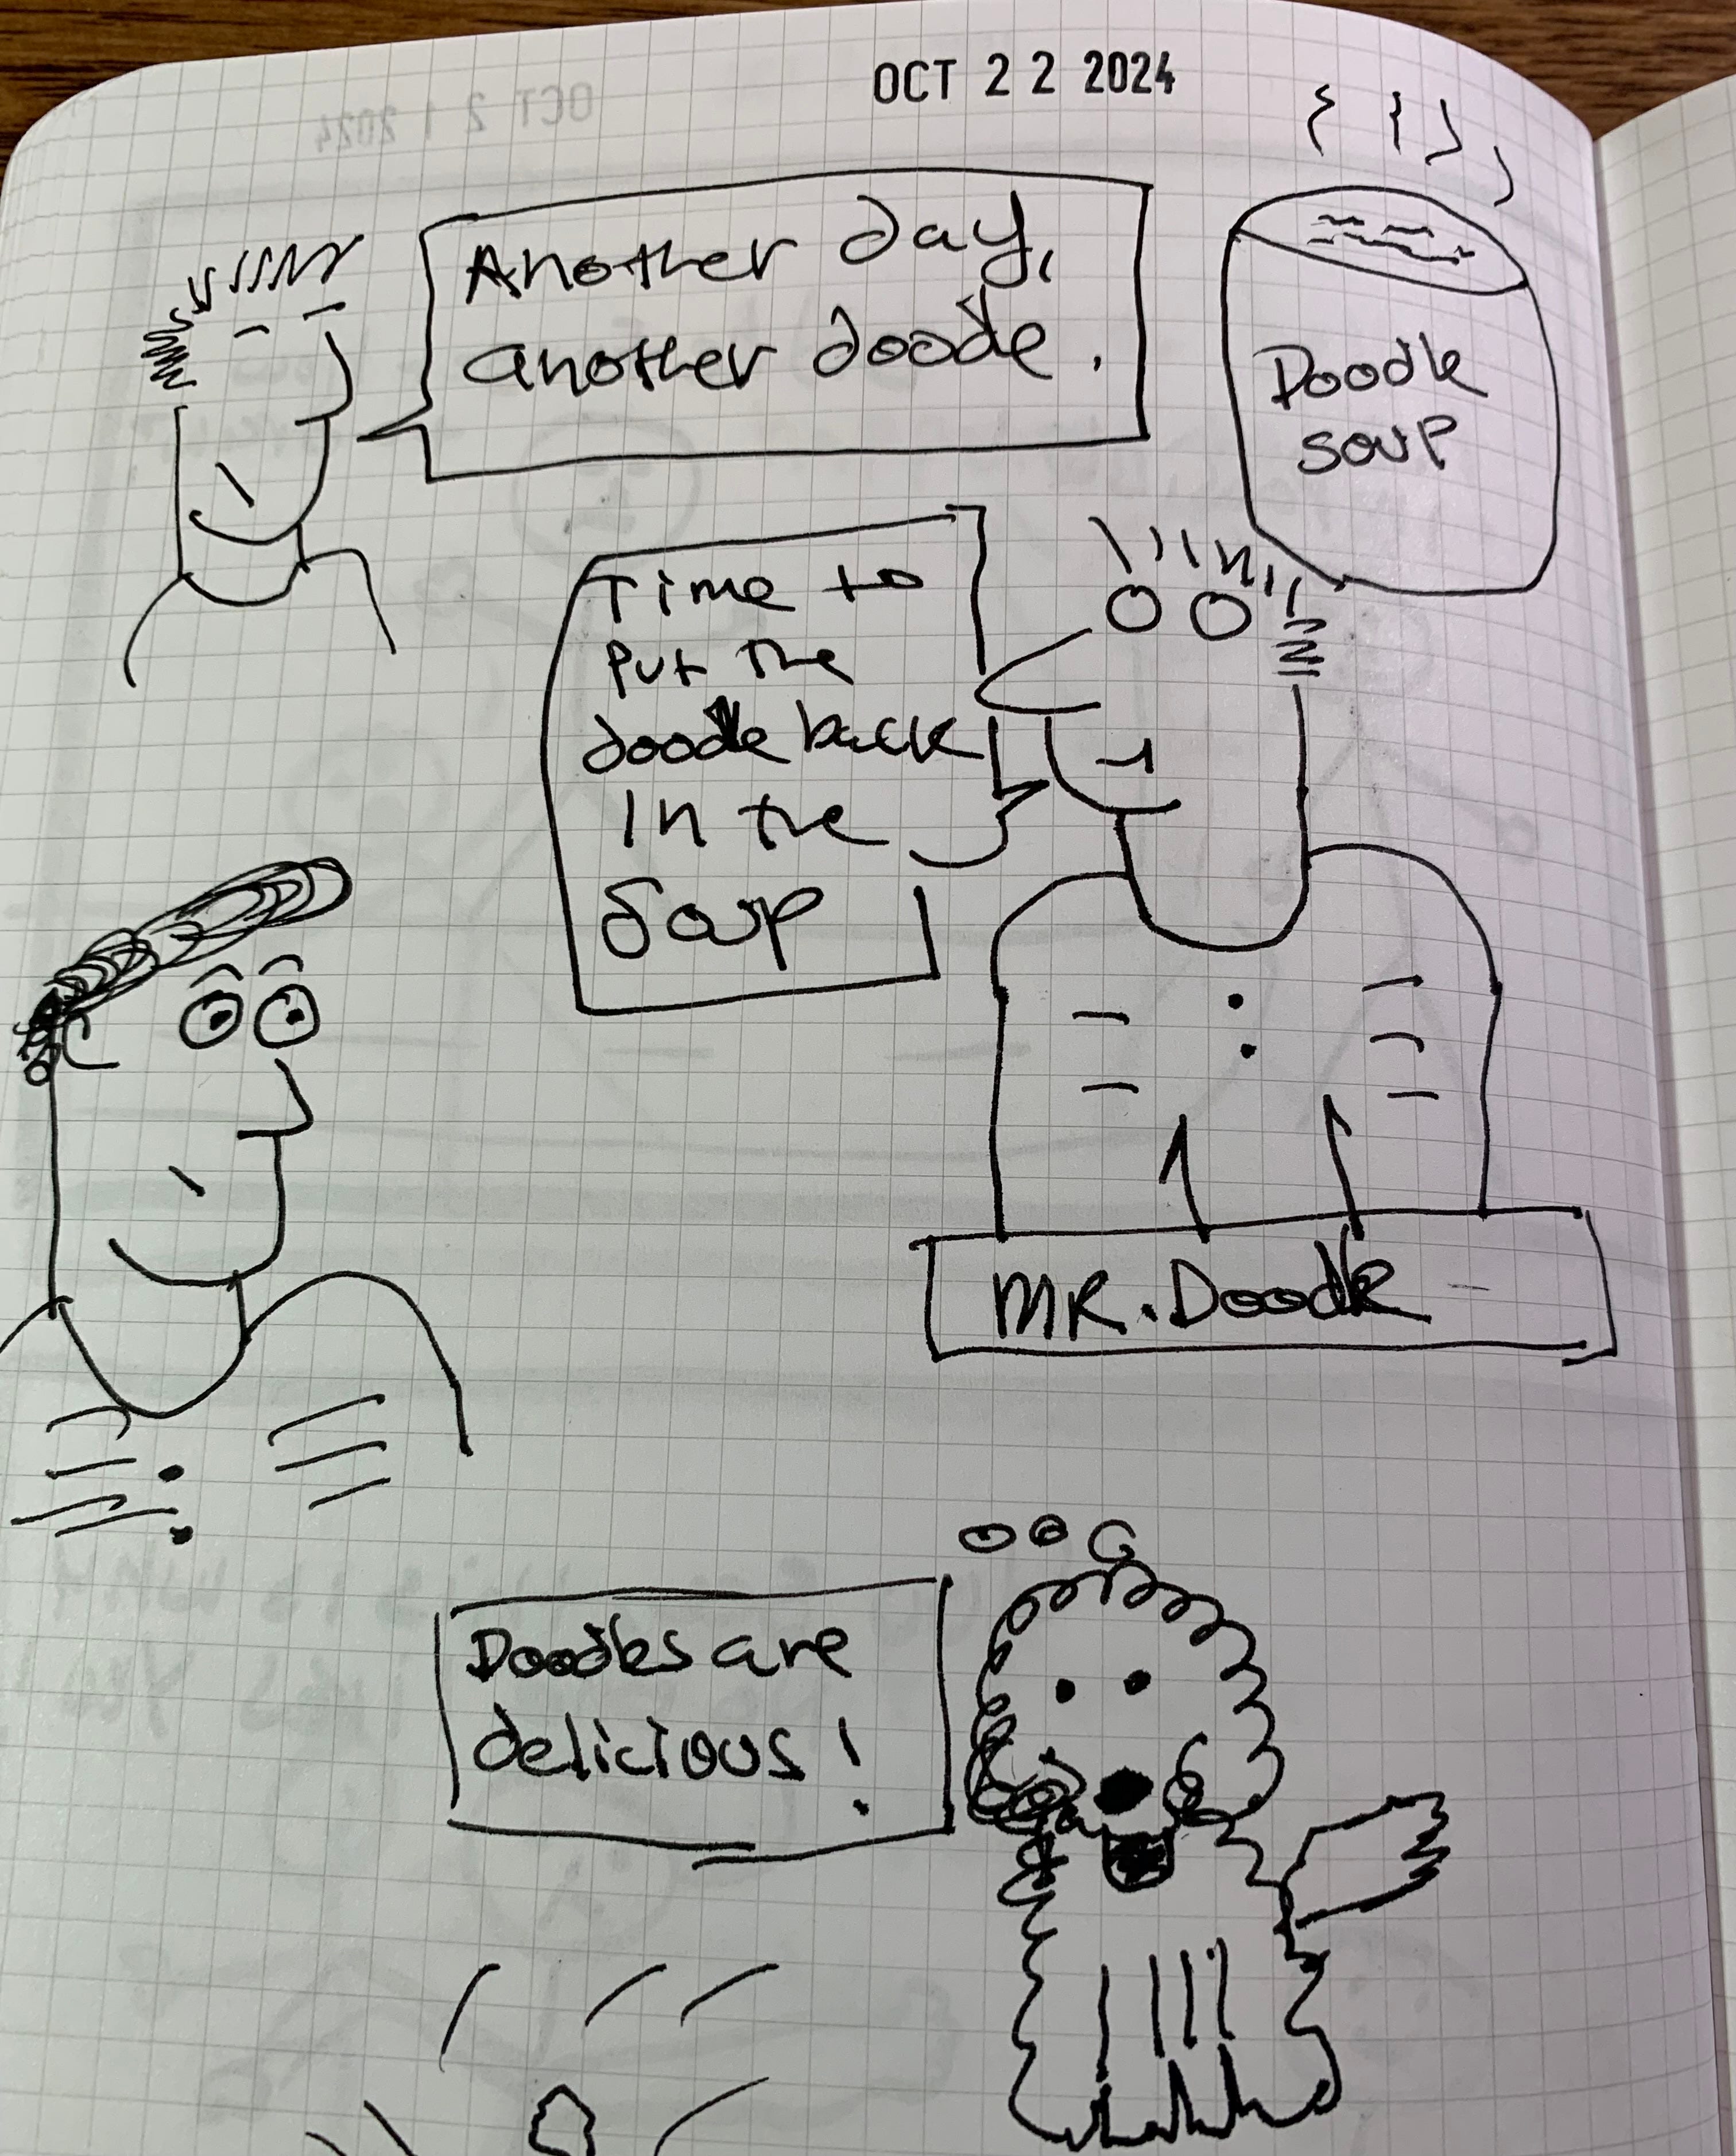 OCT 2 2 2024
OCT 2 1 2024
Another day,
another doode.
Doodle
soup
Time to
Put the
doodle back
In the
Soup
MR. Doodle
Doodles are
delicious!